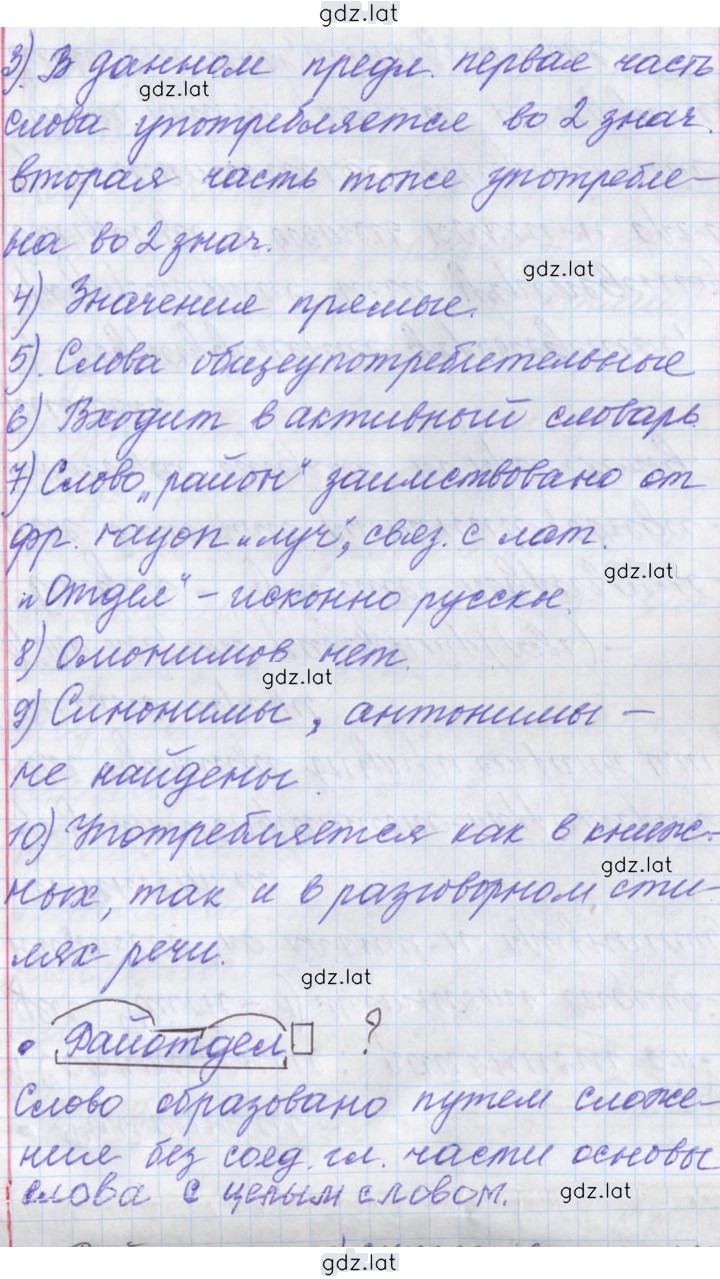 gdz.lat
3) В данном предл. первая часть
gdz.lat
слова употребляется во 2 знач.
вторая часть тоже употребле-
на во 2 знач.
gdz.lat
4) Значения прямые.
5). Слова общеупотребительные
6) Входит в активный словарь
7) Слово „район“ заимствовано от
фр. rayon „луч“, связ. с лат.
gdz.lat
„Отдел“ – исконно русскн.
8) Омонимов нет.
gdz.lat
9) Синонимы, антонимы –
не найдены.
10) Употребляется как в книж-
gdz.lat
ных, так и в разговорном сти-
лях речи.
gdz.lat
• Райотдел ?
Слово образовано путем сложе-
ния без соед. гл. части основы
слова с целым словом.
gdz.lat
gdz.lat